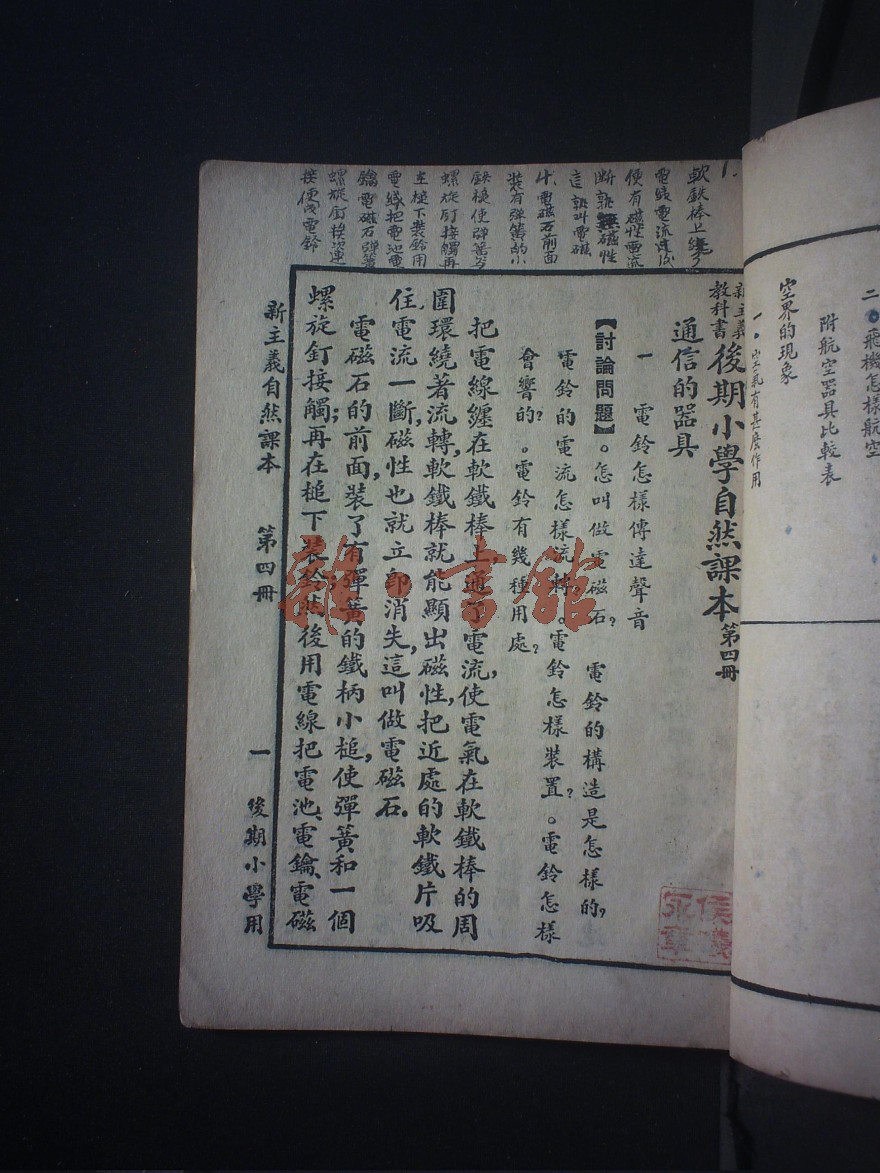 二 飛機怎樣航空
附航空器具比較表
空界的現象
一 空氣有甚麼作用
新主義教科書 後期小學自然課本 第四冊
通信的器具
一 電鈴怎樣傳達聲音
【討論問題】。怎叫做電磁石？ 電鈴的構造是怎樣的，
電鈴的電流怎樣流轉。電鈴怎樣裝置？。電鈴怎樣
會響的？。電鈴有幾種用處？
把電線纏在軟鐵棒上通了電流，使電氣在軟鐵棒的周
圍環繞著流轉，軟鐵棒就能顯出磁性，把近處的軟鐵片吸
住，電流一斷，磁性也就立卽消失，這叫做電磁石．
電磁石的前面，裝了有彈簧的鐵柄小槌，使彈簧和一個
螺旋釘接觸；再在槌下裝鈴；然後用電線把電池、電鑰、電磁
新主義自然課本 第四冊 一 後期小學用
1.
軟鉄棒上繞了
電綫電流連次
使有磁性電流
斷就無磁性
這就叫電磁
電磁石前面
裝有彈簧的小
鉄槌使彈簧与
螺旋釘接觸再
在槌下裝鈴用
電綫把電池電
鑰電磁石彈簧
螺旋釘接次連
接便成電鈴
雜·書館